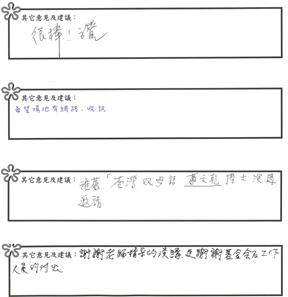 其它意見及建議：
很棒！讚
其它意見及建議：
希望場地有網路、收訊
其它意見及建議：
推薦「臺灣
博士演講
邀請
其它意見及建議：謝謝老師精彩的演講 及謝謝基金會及工作
人員的付出